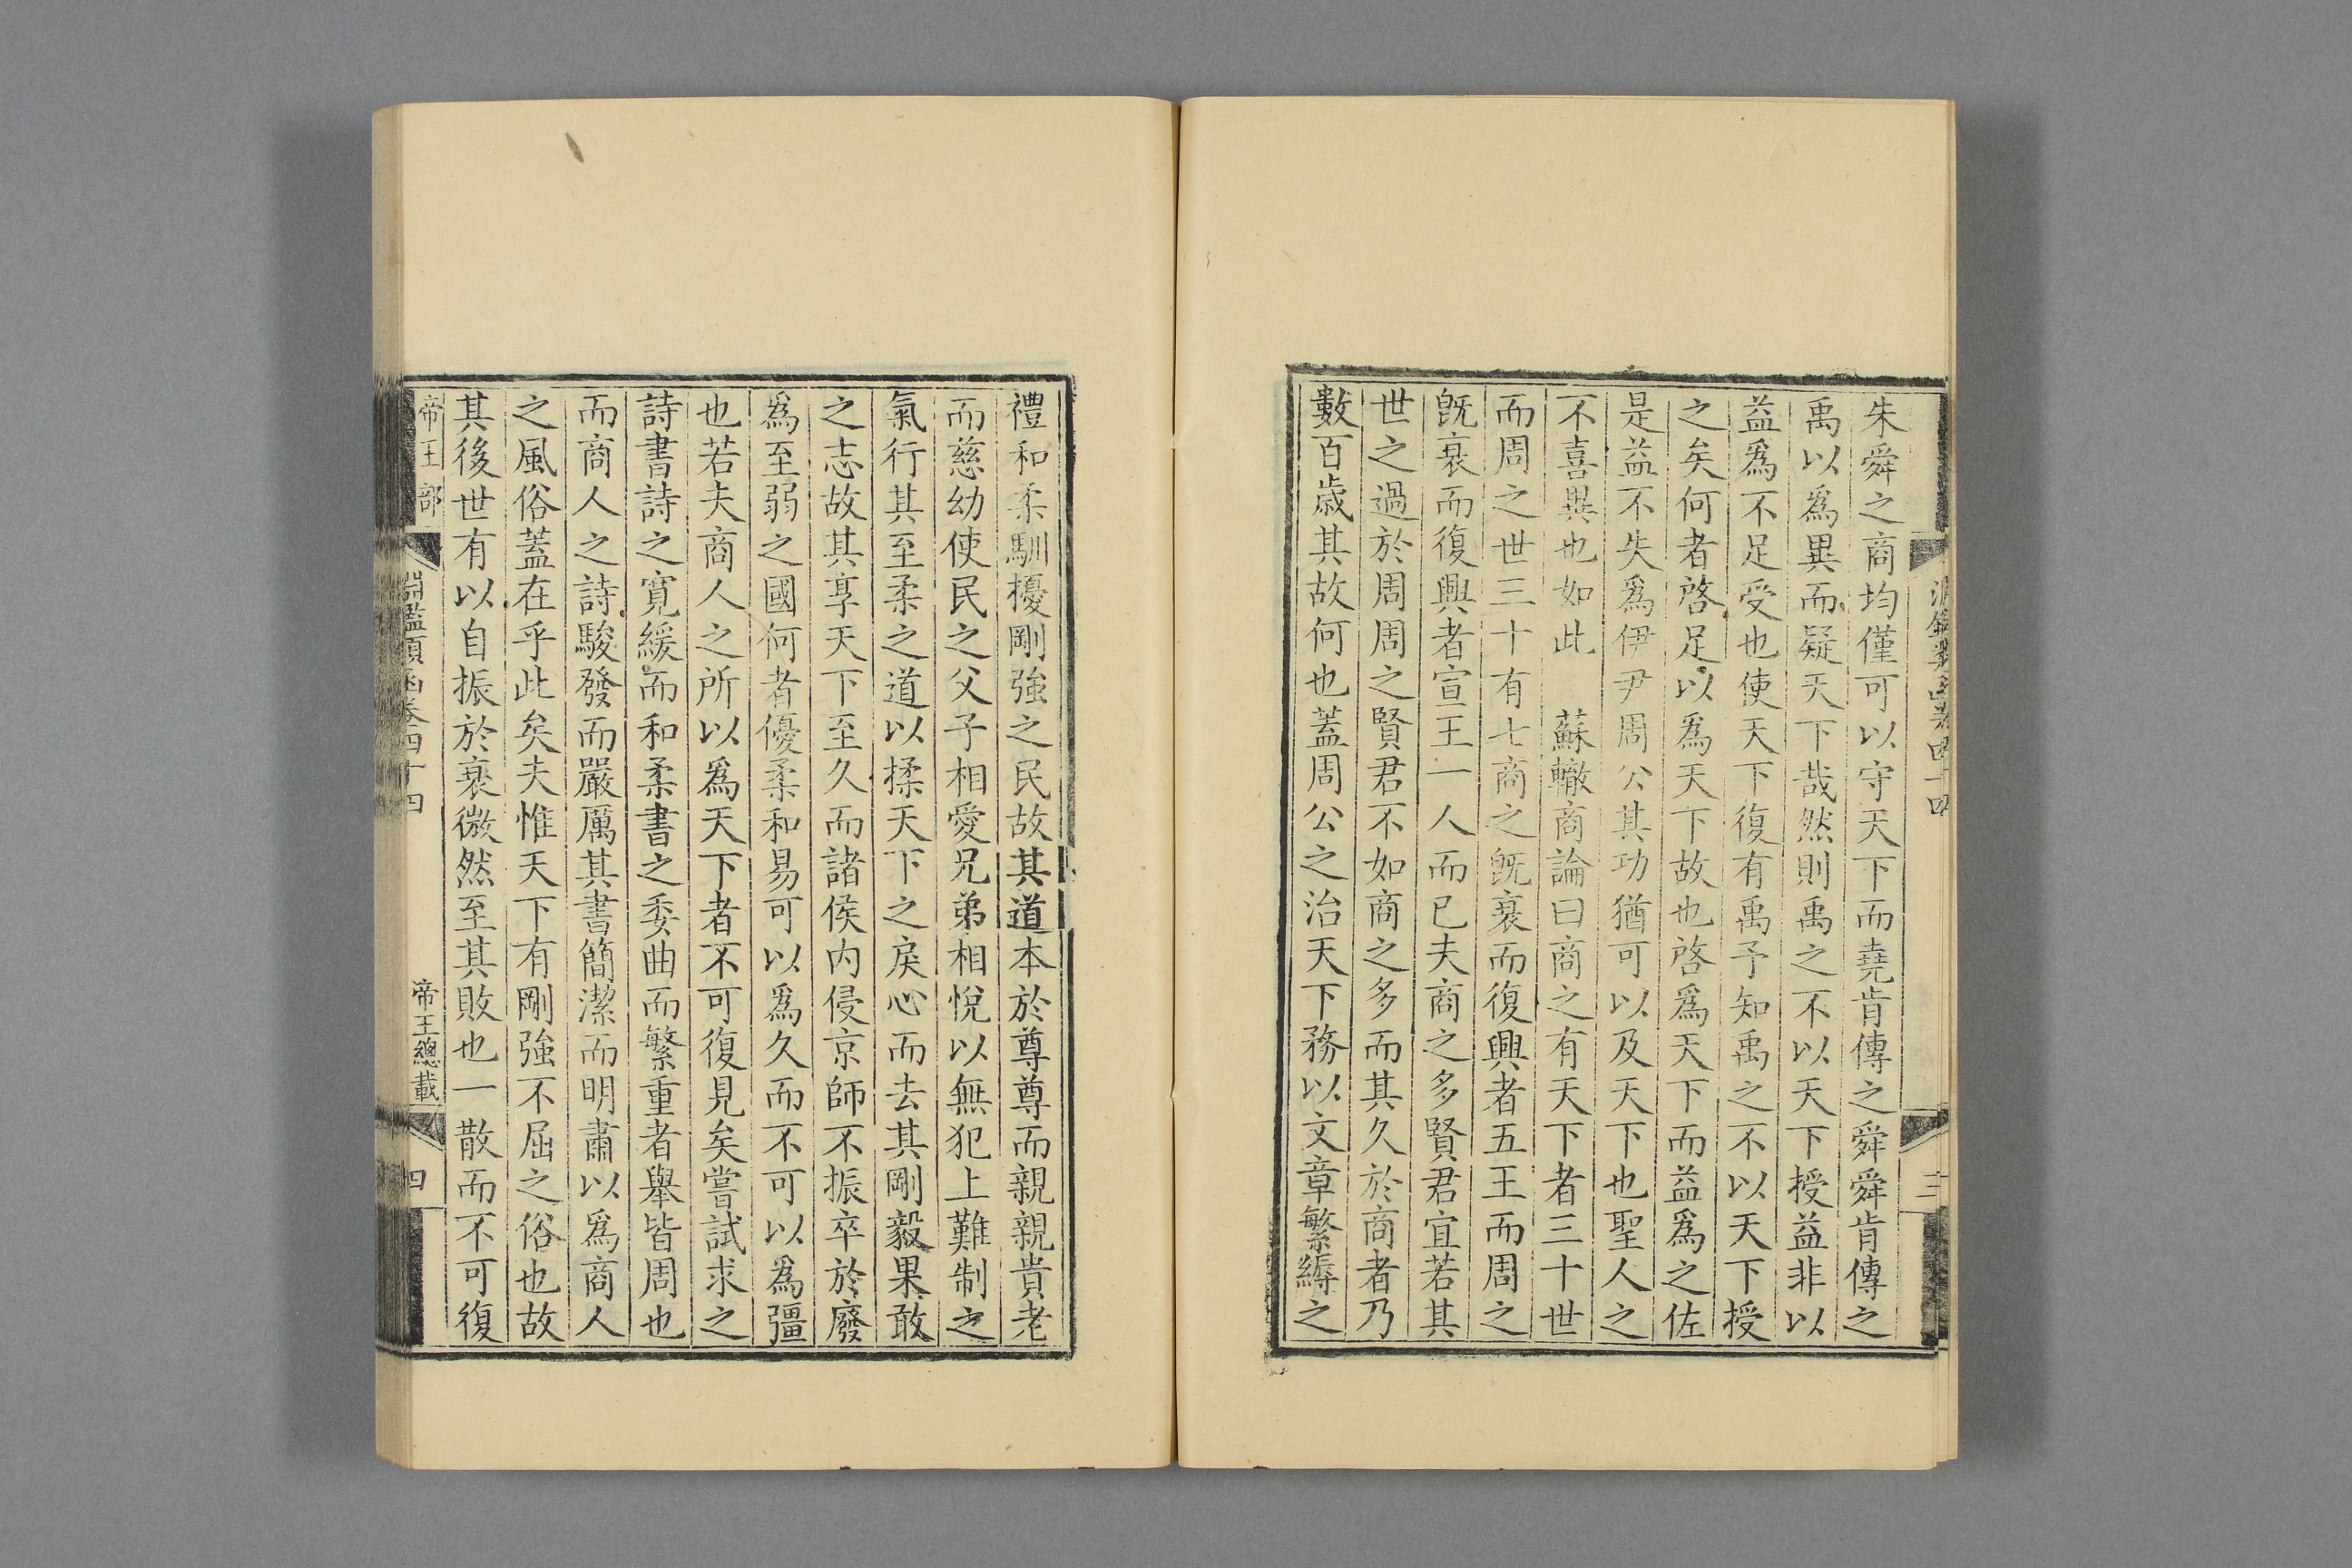 朱舜之商均僅可以守天下而堯肯傳之舜舜肯傳之
禹以爲異而疑天下哉然則禹之不以天下授益非以
益爲不足受也使天下復有禹予知禹之不以天下授
之矣何者啓足以爲天下故也啓爲天下而益爲之佐
是益不失爲伊尹周公其功猶可以及天下也聖人之
不喜異也如此　蘇轍商論曰商之有天下者三十世
而周之世三十有七商之旣衰而復興者五王而周之
旣衰而復興者宣王一人而已夫商之多賢君宜若其
世之過於周周之賢君不如商之多而其久於商者乃
數百歲其故何也蓋周公之治天下務以文章繁縟之
禮和柔馴擾剛強之民故其道本於尊尊而親親貴老
而慈幼使民之父子相愛兄弟相悅以無犯上難制之
氣行其至柔之道以揉天下之戾心而去其剛毅果敢
之志故其享天下至久而諸侯内侵京師不振卒於廢
爲至弱之國何者優柔和易可以爲久而不可以爲彊
也若夫商人之所以爲天下者不可復見矣嘗試求之
詩書詩之寬緩而和柔書之委曲而繁重者舉皆周也
而商人之詩駿發而嚴厲其書簡潔而明肅以爲商人
之風俗蓋在乎此矣夫惟天下有剛強不屈之俗也故
其後世有以自振於衰微然至其敗也一散而不可復
帝王部　淵鑑類函卷四十四　帝王總載　四